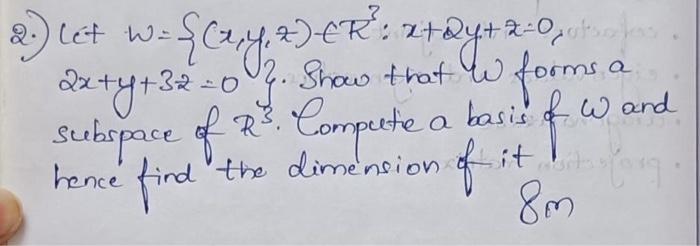 2.) Let W = {(x,y,z) ∈ R³ : x+2y+z=0,
2x+y+3z=0 }. Show that W forms a
subspace of R³. Compute a basis of W and
hence find the dimension of it
8m